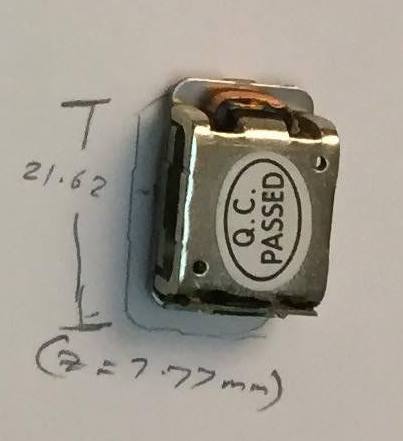 21.62
Q.C.
PASSED
(z = 7.77mm)